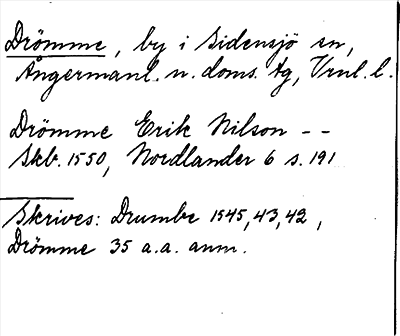 Drömme, by i Sidensjö sn,
Ångermanl. n. doms. tg, Vrnl. l.
Drömme Erik Nilson - -
Skb. 1550, Nordlander 6 s. 191
Skrives: Drumbe 1545, 43, 42,
Drömme 35 a.a. anm.